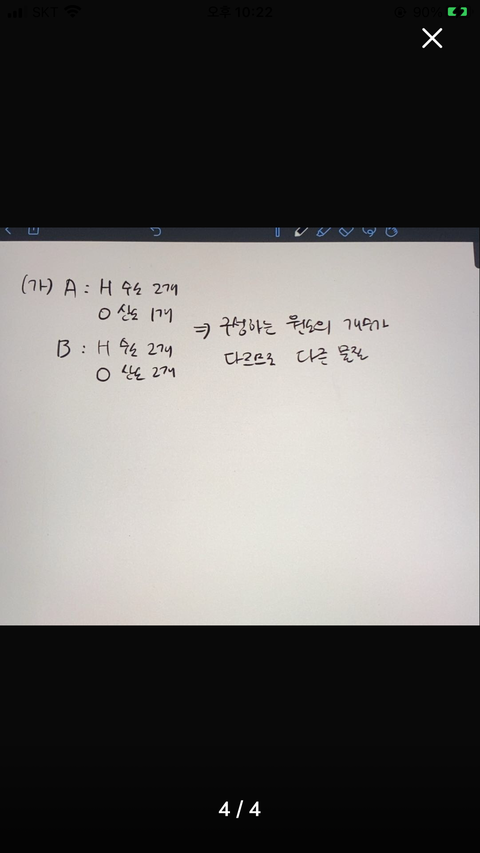 SKT 오후 10:22 90%
(가) A : H 수소 2개
O 산소 1개
⇒ 구성하는 원소의 개수가
B : H 수소 2개
다르므로 다른 물질
O 산소 2개
4 / 4